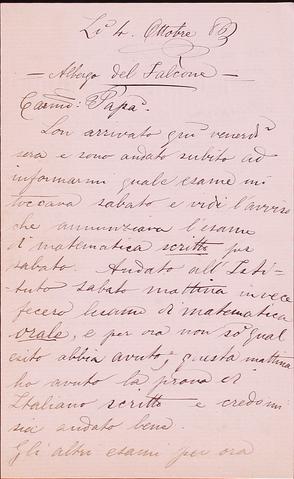 Lì 4. Ottobre 86
— Albergo del Falcone —
Carmo: Papa.
Son arrivato qui venerdì
sera e sono andato subito ad
informarmi quale esame mi
toccava sabato e vidi l'avviso
che annunziava l'esame
di matematica scritto per
sabato. Andato all'Isti-
tuto sabato mattina invece
fecero l'esame di matematica
orale, e per ora non so qual
esito abbia avuto; questa mattina
ho avuto la prova di
Italiano scritto e credomi
sia andato bene.
Gli altri esami per ora